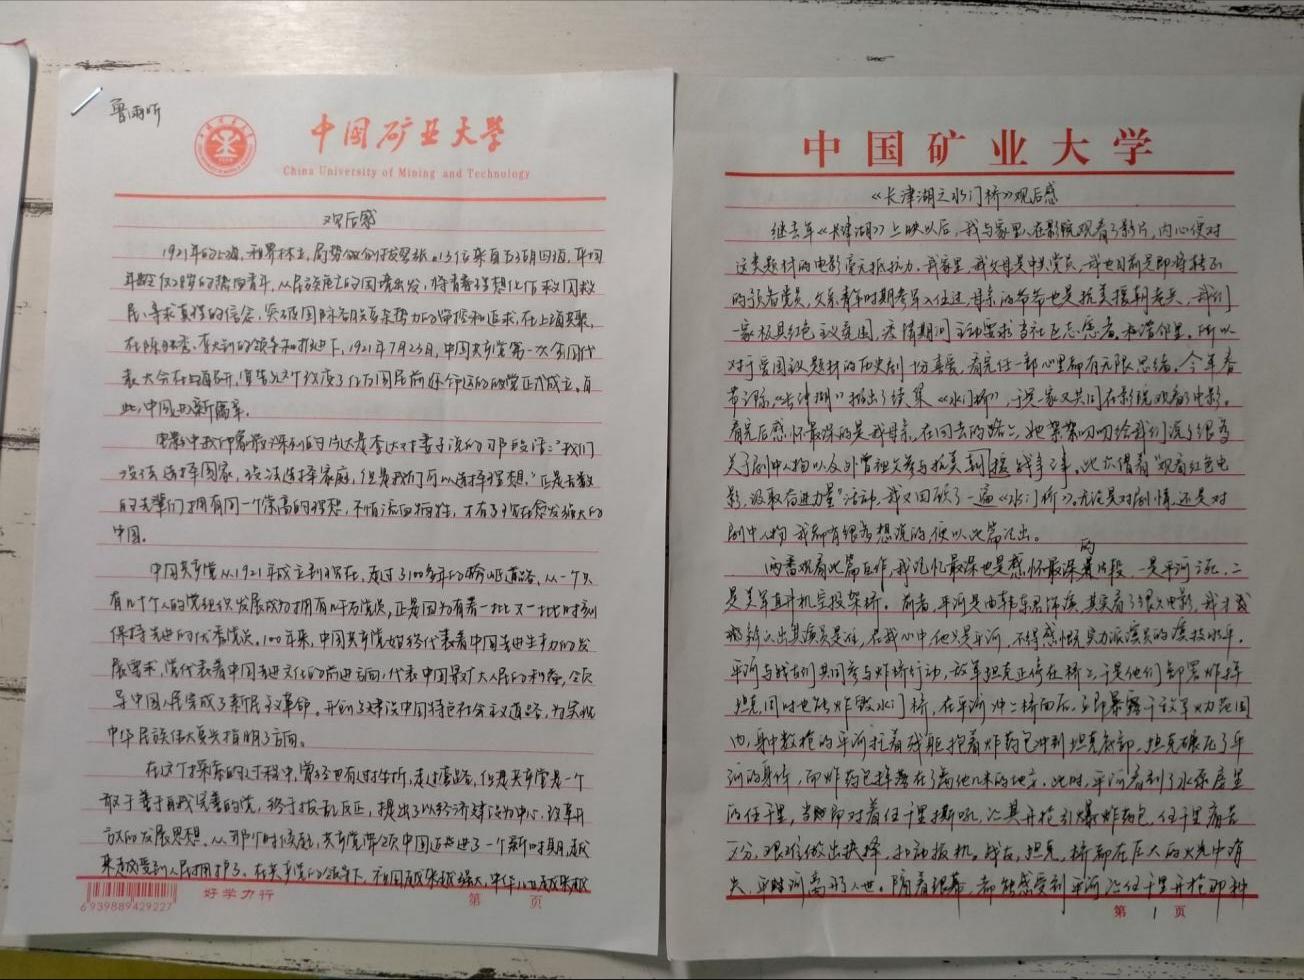 鲁雨昕
中国矿业大学
China University of Mining and Technology
观后感
1921年的上海,租界林立,局势微妙拔弩张。13位来自五湖四海,平均
年龄仅28岁的热血青年,从民族危亡的困境出发,将青春梦想化作救国救
民、寻求真理的信念,突破国际各方复杂势力的监控和追求,在上海共聚。
在陈独秀、李大钊的领导和推动下,1921年7月23日,中国共产党第一次全国代
表大会在上海召开,宣告这个改变了亿万国民前途命运的政党正式成立。自
此,中国史新篇章。
电影中我印象最深刻的当属是李达对妻子说的那段话:“我们
没法选择国家,没法选择家庭,但是我们可以选择理想,”正是无数
的先辈们拥有同一个崇高的理想,不惜流血牺牲,才有了现在愈发强大的
中国。
中国共产党从1921年成立到现在,走过了100多年的峥嵘道路,从一个只
有几十个人的党组织发展成为拥有几千万党员,正是因为有着一批又一批时刻
保持先进的优秀党员。100年来,中国共产党始终代表着中国先进生产力的发
展需求,党代表着中国先进文化的前进方向,代表中国最广大人民的利益,领
导中国人民完成了新民主革命。开创了建设中国特色社会主义道路,为实现
中华民族伟大复兴指明了方向。
在这个探索的过程中,曾经也有过挫折,走过弯路,但是共产党是一个
敢于善于自我完善的党,终于拨乱反正,提出了以经济建设为中心,改革开
放的发展思想。从那个时候起,共产党带领中国迈进了一个新时期,越
来越受到人民拥护了。在共产党的领导下,祖国越来越强大,中华儿女越来越
6939889429227
好学力行
第 页
中国矿业大学
《长津湖之水门桥》观后感
继去年《长津湖》上映以后,我与家里人在影院观看了影片,内心便对
这类题材的电影毫无抵抗力。我家里,我父母是中共党员,我也目前是即将转正
的预备党员,父亲青年时期参军入伍过,母亲的爷爷也是抗美援朝老兵,我们
一家极具红色主义氛围,疫情期间主动要求当社区志愿者,和谐邻里。所以
对于爱国主义题材的历史剧十分喜爱,看完任一部心里都有无限思绪。今年春
节之际,《长津湖》推出了续集《水门桥》,于是一家又共同在影院观看了电影。
看完后感怀最深的是我母亲,在回去的路上,她絮絮叨叨给我们说了很多
关于剧中人物以及外曾祖父参与抗美援朝战争之事。此次借着“观看红色电
影,汲取奋进力量”活动,我又回顾了一遍《水门桥》。无论是对剧情,还是对
剧中人物 我都有很多想说的,便以此篇记出。
两番观看此篇巨作,我记忆最深也是感怀最深的两片段,一是平河之死,二
是美军直升机空投架桥。前者,平河是由韩东君饰演,其实看了很久电影,我才我
都辨认出其演员是谁,在我心中他仅是平河,不得感慨实力派演员的演技水平。
平河与战友们共同参与炸桥行动,敌军坦克正停在桥上,于是他们部署炸掉
坦克,同时也能炸毁水门桥,在平河冲上桥面后,立即暴露于敌军火力范围
内,身中数枪的平河拉着残躯抱着炸药包冲到坦克底部,坦克碾压了平
河的身体,而炸药包掉落在了离他几米的地方。此时,平河看到了水泵房里
的任千里,当即对着伍千里嘶吼,让其开枪引爆炸药包,伍千里痛苦
万分,艰难做出抉择,扣动扳机。战友,坦克,桥都在巨大的火光中消
失,平河离开人世。隔着银幕,都能感受到平河让伍千里开枪那种
第 1 页